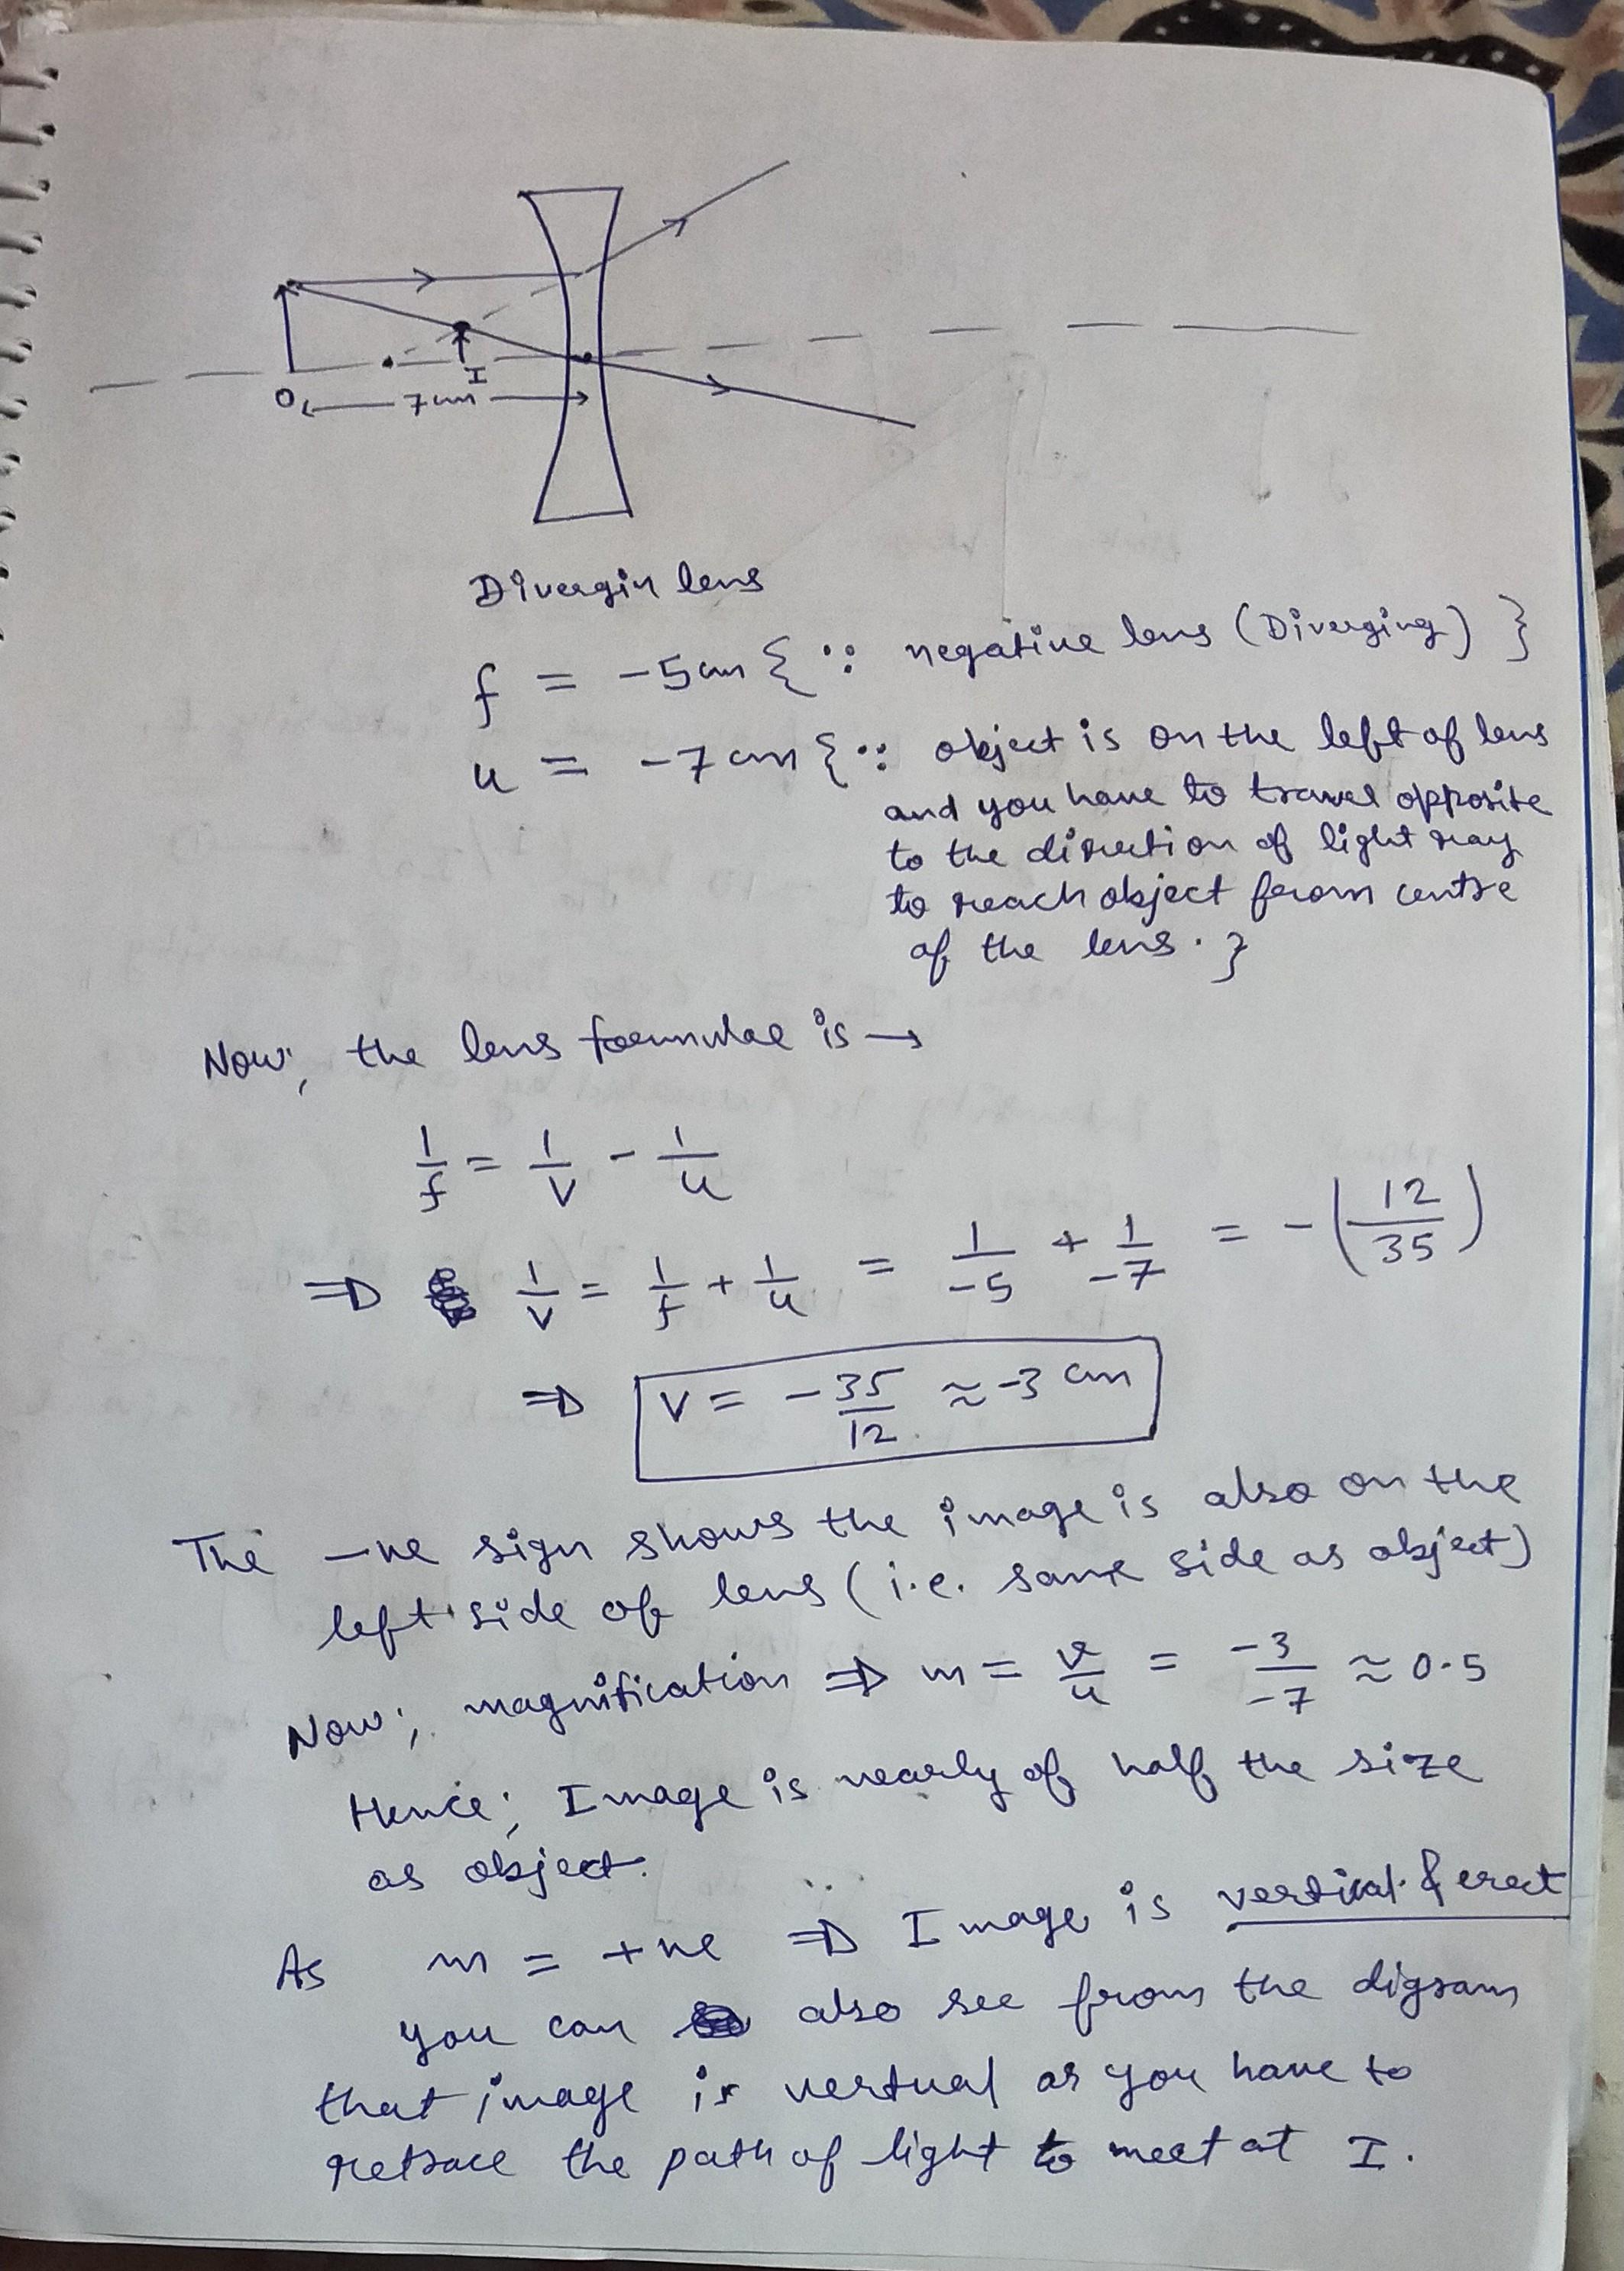 I
O ← 7cm →
Divergin lens
f = -5cm {∵ negative lens (Diverging) }
u = -7cm {∵ object is on the left of lens
and you have to travel opposite
to the direction of light ray
to reach object from centre
of the lens. }
Now, the lens formulae is →
1/f = 1/v - 1/u
⇒ 1/v = 1/f + 1/u = 1/-5 + 1/-7 = -(12/35)
⇒ v = -35/12 ≈ -3 cm
The -ve sign shows the image is also on the
left side of lens (i.e. same side as object)
Now; magnification ⇒ m = v/u = -3/-7 ≈ 0.5
Hence; Image is nearly of half the size
as object.
As m = +ve ⇒ Image is vertical & erect
you can also see from the digram
that image is vertual as you have to
retrace the path of light to meet at I.